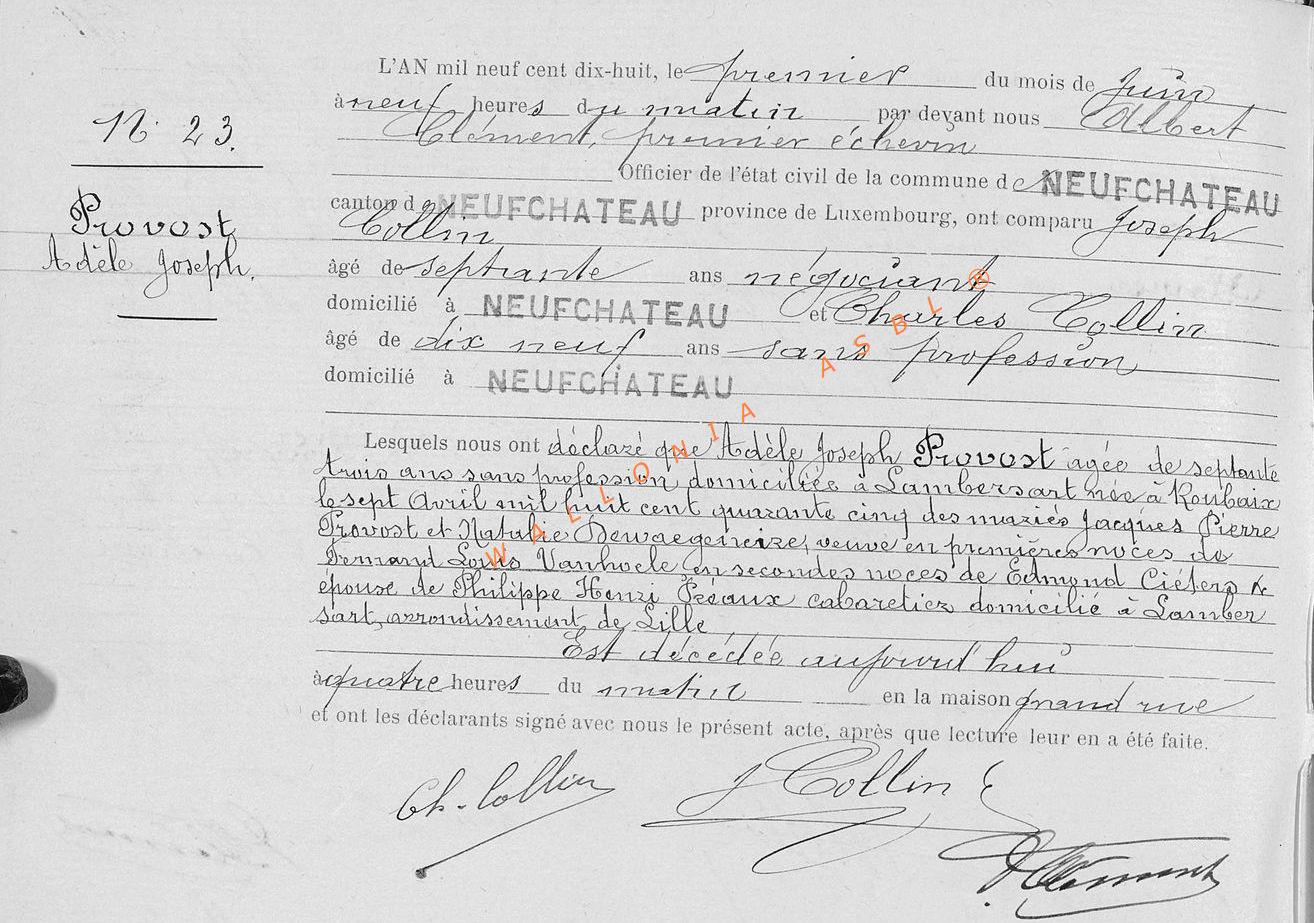 N. 23.
Provost
Adèle Joseph.
L'AN mil neuf cent dix-huit, le premier du mois de Juin
à neuf heures du matin par devant nous Albert
Clément, premier échevin
Officier de l'état civil de la commune de NEUFCHATEAU
canton de NEUFCHATEAU province de Luxembourg, ont comparu Joseph
Collin
âgé de septante ans négociant
domicilié à NEUFCHATEAU et Charles Collin
âgé de dix neuf ans sans profession
domicilié à NEUFCHATEAU
Lesquels nous ont déclaré que Adèle Joseph Provost agée de septante
trois ans sans profession domiciliée à Lambersart née à Roubaix
le sept Avril mil huit cent quarante cinq des mariés Jacques Pierre
Provost et Natalie Dewaegeneire, veuve en premières noces de
Fernand Louis Vanhoele en secondes noces de Edmond &
épouse de Philippe Henri Préaux cabaretier domicilié à Lamber
sart, arrondissement de Lille
Est décédée aujourd'hui
à quatre heures du matin en la maison grand rue
et ont les déclarants signé avec nous le présent acte, après que lecture leur en a été faite.
Ch. Collin J Collin
AClément
WALLONIA ASBL ®